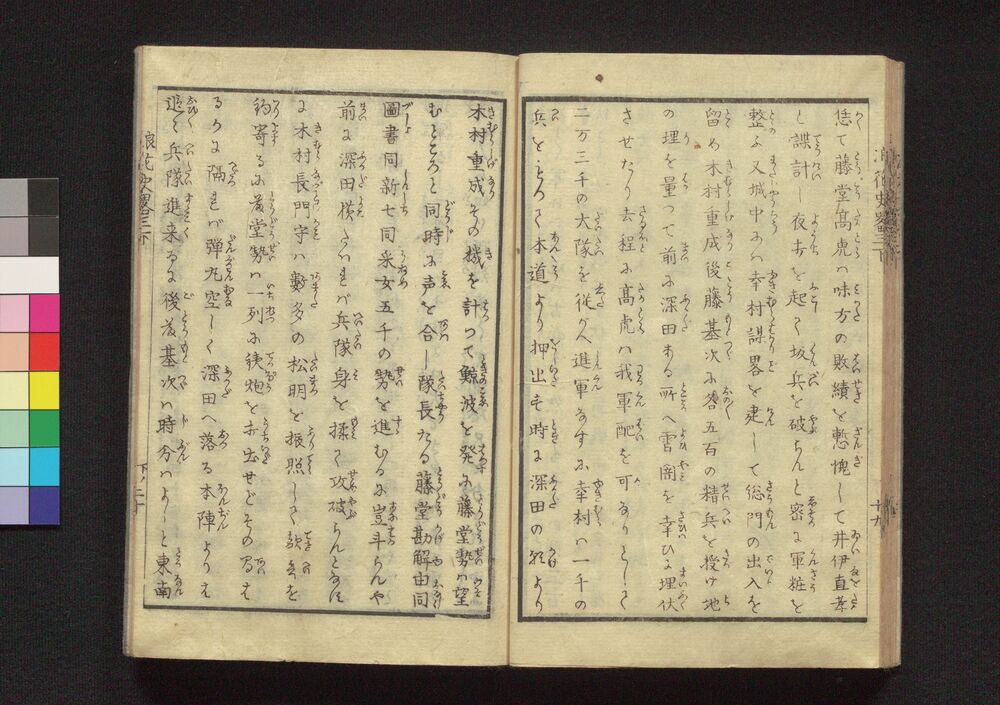 恁て藤堂高虎ハ味方の敗績を慙愧して井伊直孝
と諜計し夜討を起して坂兵を破らんと密に軍粧を
整ふ又城中にハ幸村謀畧を建して総門の出入を
留め木村重成後藤基次に各五百の精兵を授け地
の理を量つて前に深田ある所へ雪闇を幸ひに埋伏
させたり去程に高虎ハ我軍配を可なりとして
二万三千の大隊を従へ進軍なすに幸村ハ一千の
兵をもつて本道より押出す時に深田の
より
木村重成その機を計つて鯨波を発に藤堂勢ハ望
むところと同時に声を合し隊長たる藤堂勘解由同
圖書同新七同采女五千の勢を進むるに豈斗らんや
前に深田横たハれバ兵隊身を揉て攻破らんとなす
に木村長門守ハ數多の松明を振照して敵兵を
釣寄るに藤堂勢ハ一列に銕炮を打出せどその間を
るかに隔れバ弾丸空しく深田へ落る本陣よりも
追々兵隊進来るに後藤基次ハ時分ハよしと東南
浪花史畧三ノ下
下ノ二十
十九